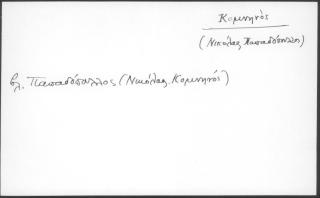 Κομνηνός
(Νικόλαος Παπαδόπουλλος)
βλ. Παπαδόπουλλος (Νικόλαος Κομνηνός)